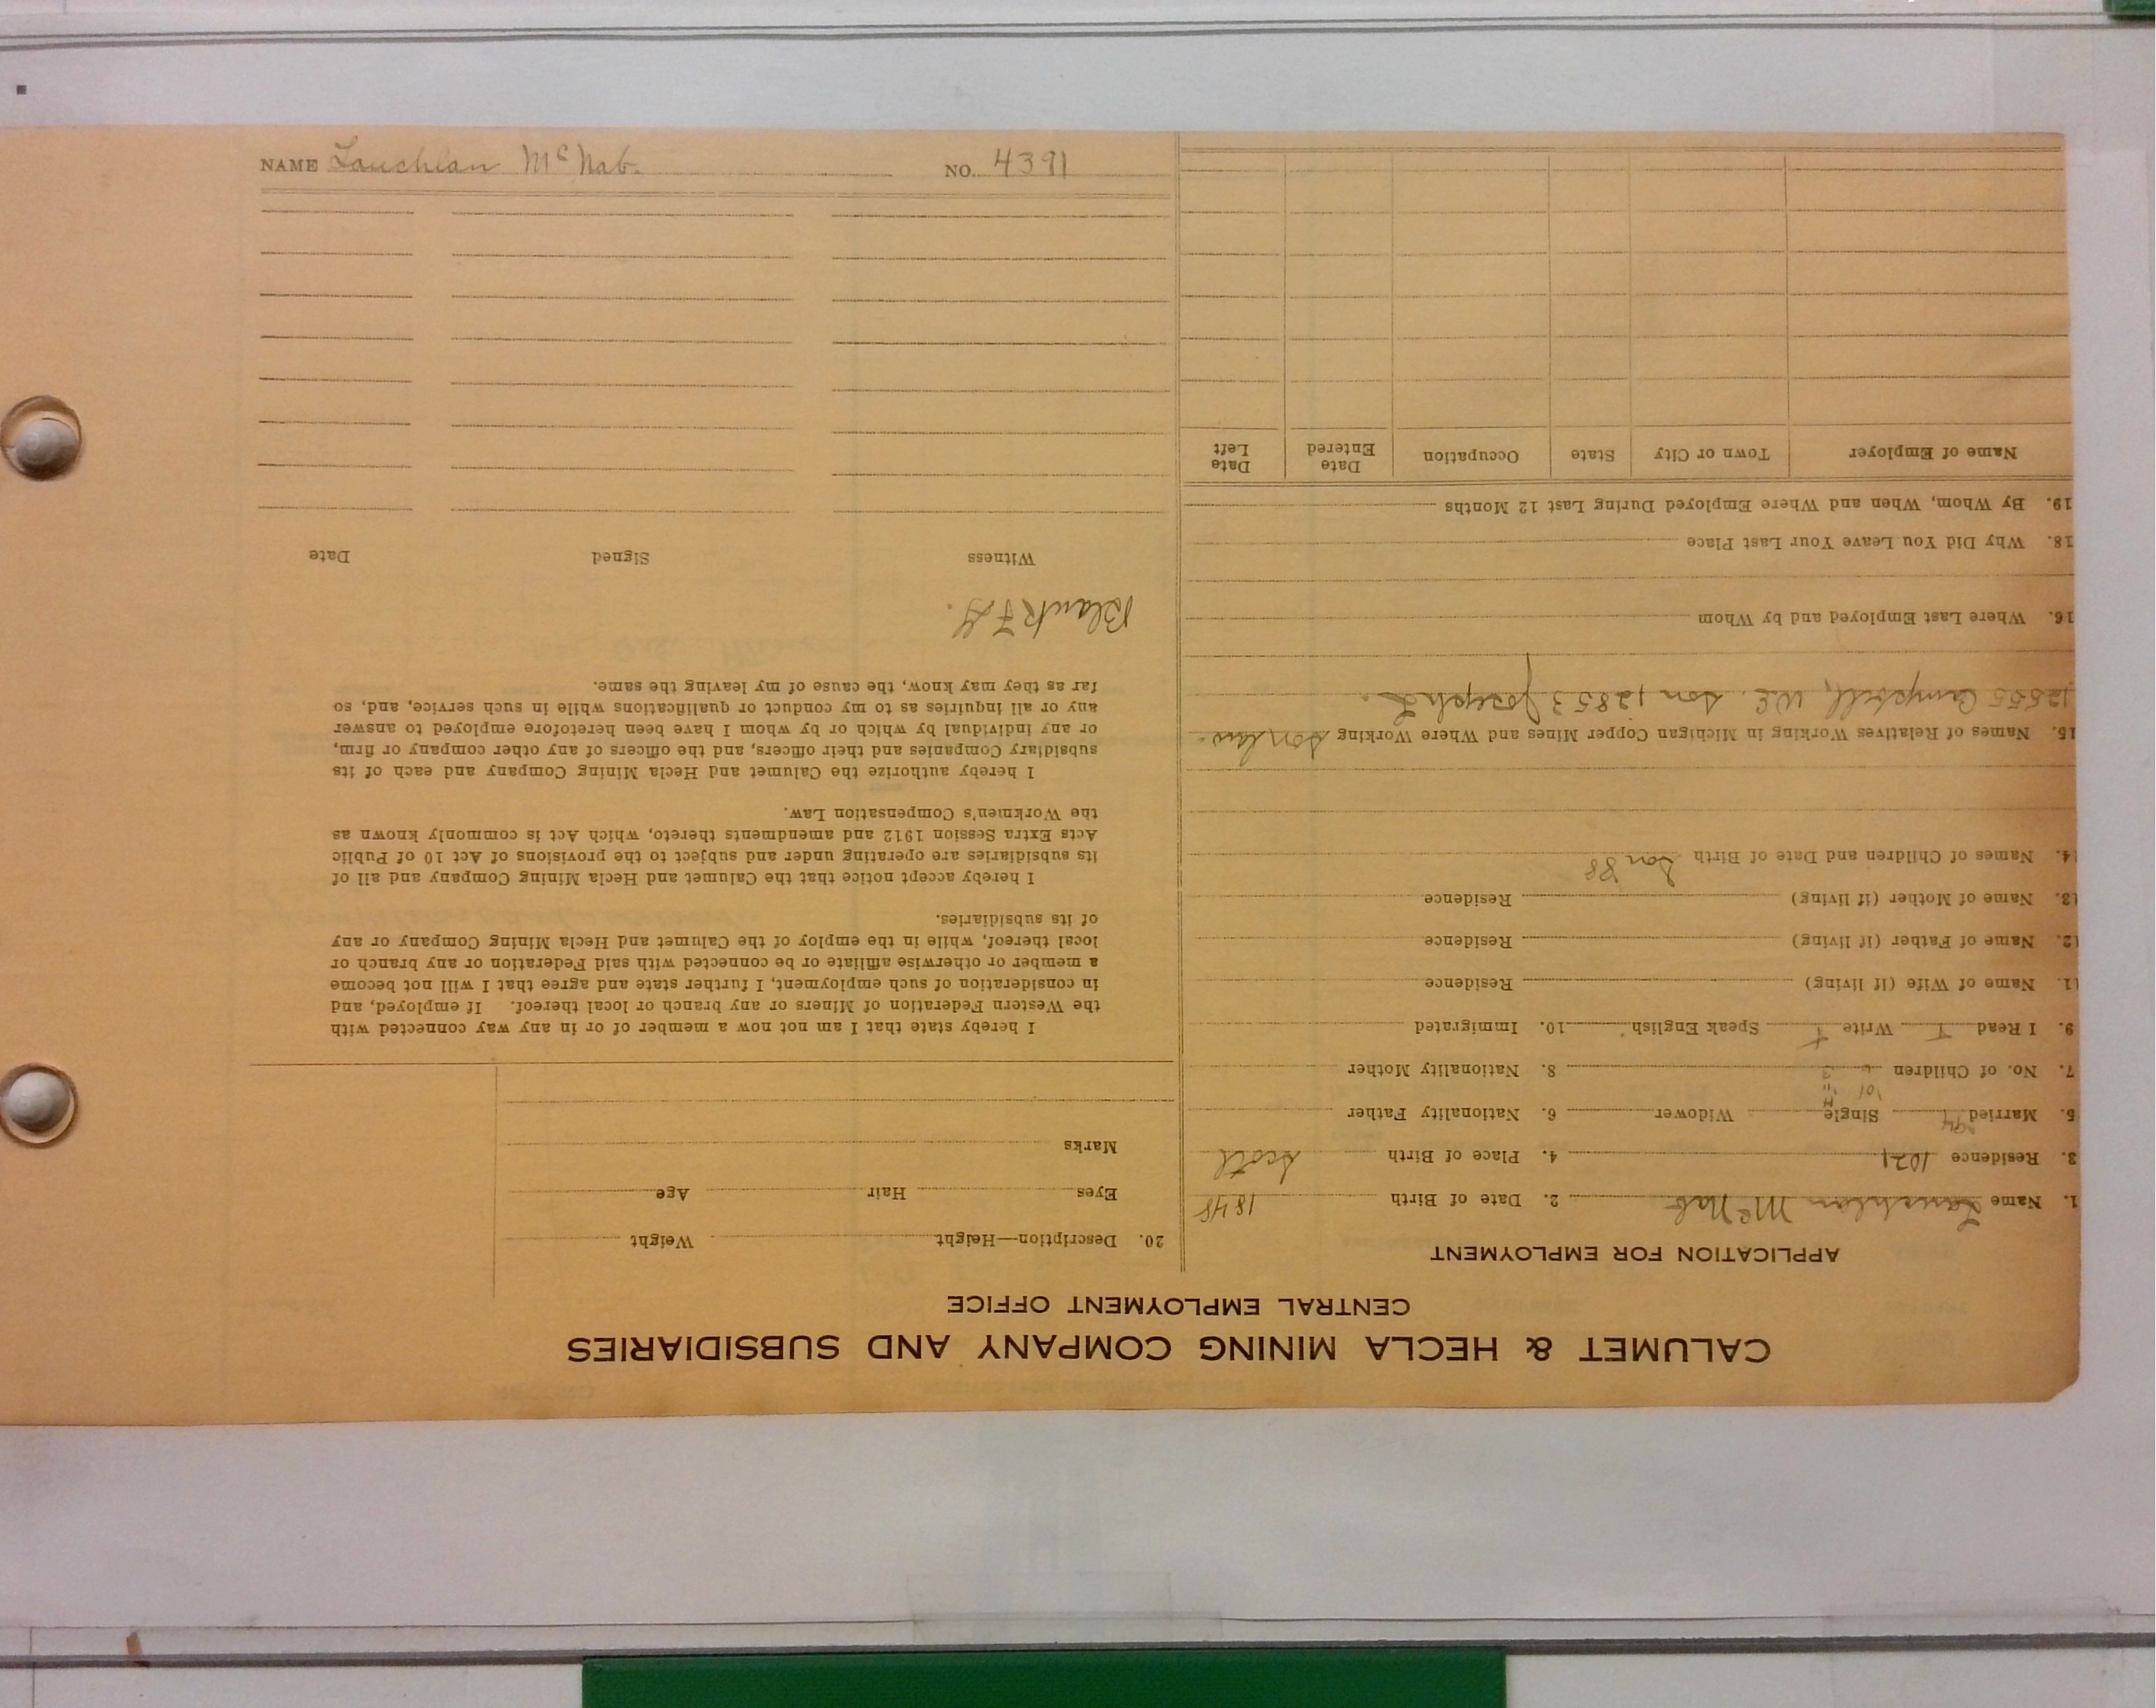 NAME Lauchlan McNab. NO. 4391
CALUMET & HECLA MINING COMPANY AND SUBSIDIARIES
CENTRAL EMPLOYMENT OFFICE
APPLICATION FOR EMPLOYMENT
1. Name Lauchlan McNab 2. Date of Birth 1848
3. Residence 1021 4. Place of Birth Scotl
5. Married Single Widower 6. Nationality Father
7. No. of Children 8. Nationality Mother
9. I Read Write Speak English 10. Immigrated
11. Name of Wife (if living) Residence
12. Name of Father (if living) Residence
13. Name of Mother (if living) Residence
14. Names of Children and Date of Birth Son 88
15. Names of Relatives Working in Michigan Copper Mines and Where Working Son law.
12855 Campbell, W.E. Son 12853 Joseph L.
16. Where Last Employed and by Whom
18. Why Did You Leave Your Last Place
19. By Whom, When and Where Employed During Last 12 Months
Name of Employer Town or City State Occupation Date Entered Date Left
20. Description—Height Weight
Eyes Hair Age
Marks
I hereby state that I am not now a member of or in any way connected with
the Western Federation of Miners or any branch or local thereof. If employed, and
in consideration of such employment, I further state and agree that I will not become
a member or otherwise affiliate or be connected with said Federation or any branch or
local thereof, while in the employ of the Calumet and Hecla Mining Company or any
of its subsidiaries.
I hereby accept notice that the Calumet and Hecla Mining Company and all of
its subsidiaries are operating under and subject to the provisions of Act 10 of Public
Acts Extra Session 1912 and amendments thereto, which Act is commonly known as
the Workmen's Compensation Law.
I hereby authorize the Calumet and Hecla Mining Company and each of its
subsidiary Companies and their officers, and the officers of any other company or firm,
or any individual by which or by whom I have been heretofore employed to answer
any or all inquiries as to my conduct or qualifications while in such service, and, so
far as they may know, the cause of my leaving the same.
Blank
Witness Signed Date